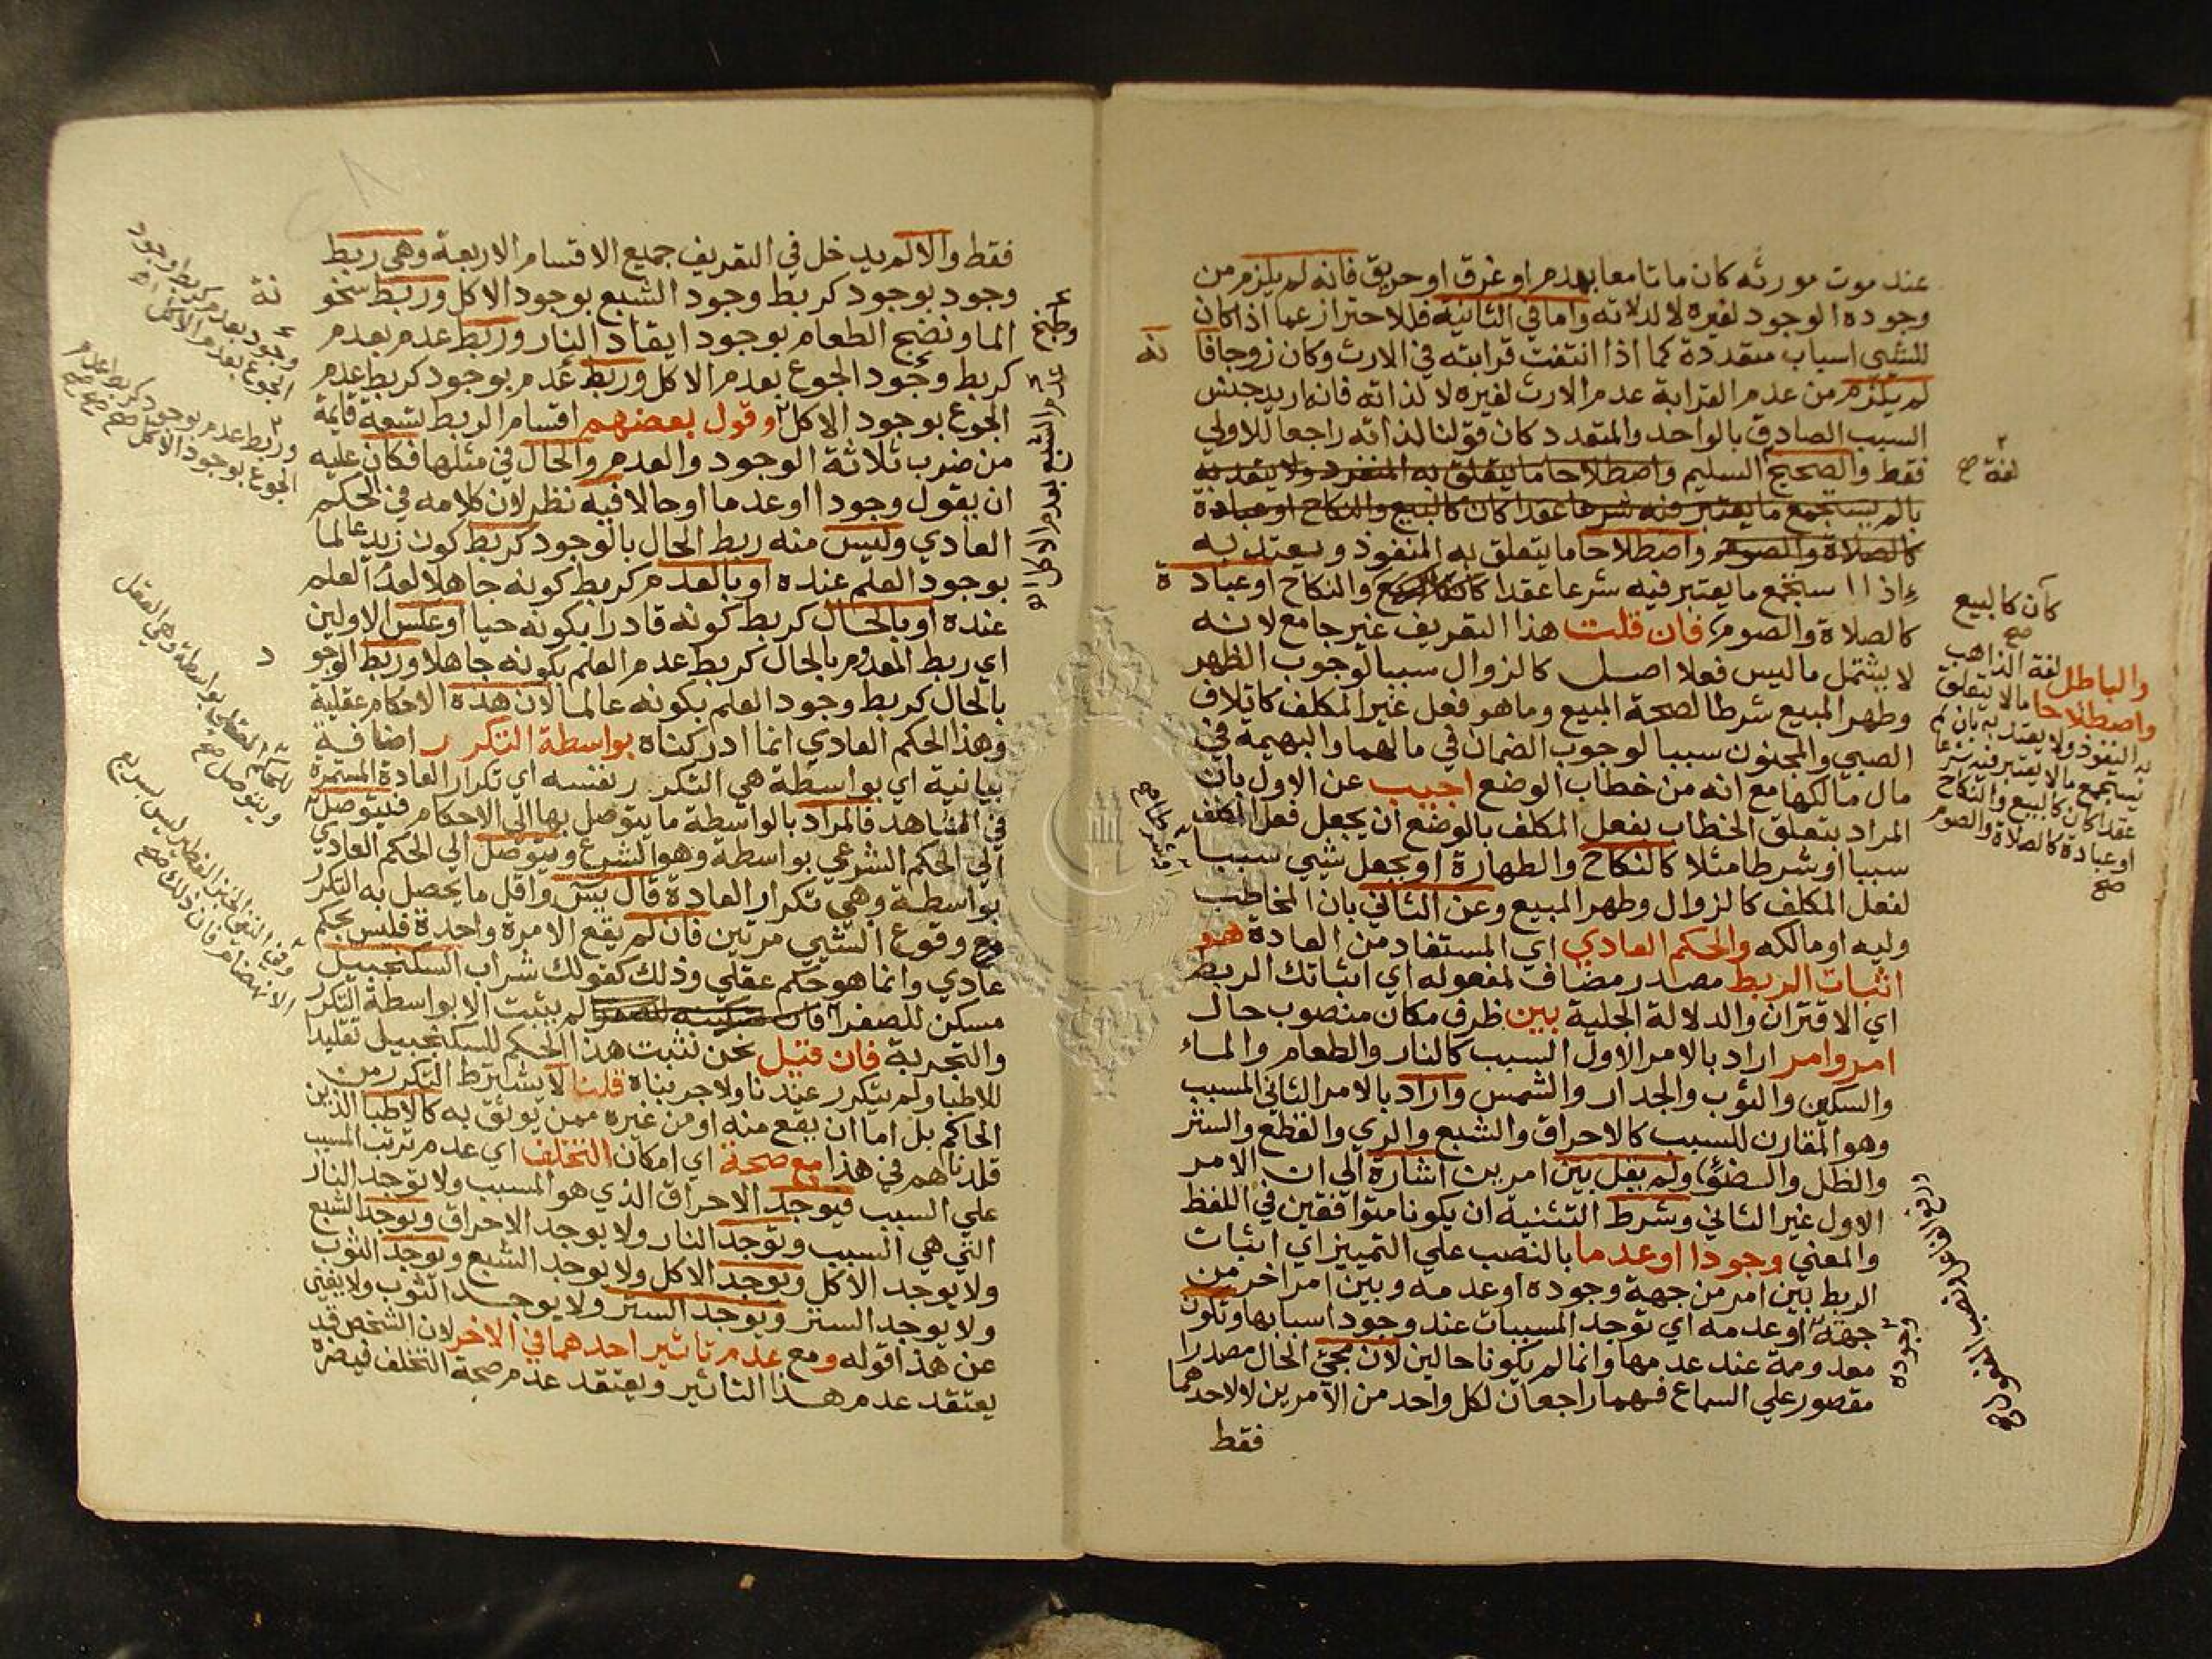 عند موت مورثه كان ماتا معا بهدم او غرق او حريق فانه لم يلزم من
وجوده الوجود لغيره لا لدلاته واما في الثانية فللاحتراز عما اذا كان
للشيي اسباب متعددة كما اذا انتفت قرابته في الارث وكان زوجا فا
لم يلزم من عدم القرابة عدم الارث لغيره لا لذاته فانه اريد جنس
السبب الصادق بالواحد والمتعدد كان قولنا لذاته راجعا للاولي
فقط والصحيح السليم واصطلاحا ما يتعلق به النفوذ ولا يعتد به
بالم يستجمع ما يعتبر فيه شرعا عقدا كان كالبيع والنكاح او عبادة
كالصلاة والصوم واصطلاحا ما يتعلق به النفوذ ويعتد به
اذا استجمع ما يعتبر فيه شرعا عقدا والنكاح او عبادة
كالصلاة والصوم فان قلت هذا التعريف غير جامع لانه
لا يشتمل ما ليس فعلا اصل كالزوال سببا لوجوب الظهر
وطهر المبيع شرطا لصحة المبيع وما هو فعل غير المكلف كاتلاف
الصبي والمجنون سببا لوجوب الضمان في مالهما والبهيمة في
مال مالكها مع انه من خطاب الوضع اجيب عن الاول بان
المراد بتعلق الخطاب بفعل المكلف بالوضع ان يجعل فعل المكلف
سببا او شرطا مثلا كالنكاح والطهارة او يجعل شيي سببا
لفعل المكلف كالزوال وطهر المبيع وعن الثاني بان المخاطب
وليه او مالكه والحكم العادي اي المستفاد من العادة هو
اثبات الربط مصدر مضاف لمفعوله اي اثباتك الربط
اي الاقتران والدلالة الجلية بين ظرف مكان منصوب حال
امر وامر اراد بالامر الاول السبب كالنار والطعام والماء
والسكين والثوب والجدار والشمس واراد بالامر الثاني المسبب
وهو المقارن للسبب كالاحراق والشبع والري والقطع والستر
والظل والضوء ولم يقل بين امرين اشارة الي ان الامر
الاول غير الثاني وشرط التثنية ان يكونا متوافقين في اللفظ
والمعني وجودا او عدما بالنصب علي التمييز اي اثبات
الربط بين امر من جهة وجوده او عدمه وبين امر اخر من
جهة او عدمه اي توجد المسببات عند وجود اسبابها وتكون
معدومة عند عدمها وانما لم يكونا حالين لان مجئ الحال مصدرا
مقصور علي السماع فهما راجعان لكل واحد من الامرين لا لاحدهما
فقط
لغة صح
كان كالبيع
صح
والباطل لغة الذاهب
واصطلاحا ما لا يتعلق
به النفوذ ولا يعتد به بان لم
يستجمع ما لا يعتبر فيه شرعا
عقدا كان كالبيع والنكاح
او عبادة كالصلاة والصوم
صح
وجوده
فقط والا لم يدخل في التعريف جميع الاقسام الاربعة وهي ربط
وجود بوجود كربط وجود الشبع بوجود الاكل وربط سخو
الما ونضج الطعام بوجود ايقاد النار وربط عدم بعدم
كربط وجود الجوع بعدم الاكل وربط عدم بوجود كربط عدم
الجوع بوجود الاكل وقول بعضهم اقسام الربط تسعة قايمة
من ضرب ثلاثة الوجود والعدم والحال في مثلها فكان عليه
ان يقول وجودا او عدما او حالا فيه نظر لان كلامه في الحكم
العادي وليس منه ربط الحال بالوجود كربط كون زيد عالما
بوجود العلم عنده او بالعدم كربط كونه جاهلا لعدم العلم
عنده او بالحال كربط كونه قادرا بكونه حيا او عكس الاولين
اي ربط المعدوم بالحال كربط عدم العلم بكونه جاهلا وربط الوجو
بالحال كربط وجود العلم بكونه عالما لان هذه الاحكام عقلية
وهذا الحكم العادي انما ادركناه بواسطة التكرر اضافة
بيانية اي بواسطة هي التكرر نفسه اي تكرار العادة المستمرة
في المشاهد فالمراد بالواسطة ما يتوصل بها الي الاحكام فيتوصل
الي الحكم الشرعي بواسطة وهو الشرع ويتوصل الي الحكم العادي
بواسطة وهي تكرار العادة قال يس واقل ما يحصل به التكرر
وقوع الشيي مرتين فان لم يقع الا مرة واحدة فليس بحكم
عادي وانما هو حكم عقلي وذلك كقولك شراب السكنجبيل
مسكن للصفرا فان تسكينه للصفرا لم يثبت الا بواسطة التكرر
والتجربة فان قيل نحن نثبت هذا الحكم للسكنجبيل تقليدا
للاطبا ولم يتكرر عندنا ولا جربناه قلنا لا يشترط التكرر من
الحاكم بل اما ان يقع منه او من غيره ممن يوثق به كالاطبا الذين
قلدناهم في هذا مع صحة اي امكان التخلف اي عدم ترتب المسبب
علي السبب فيوجد الاحراق الذي هو المسبب ولا توجد النار
التي هي السبب وتوجد النار ولا يوجد الاحراق ويوجد الشبع
ولا يوجد الاكل ويوجد الاكل ولا يوجد الشبع ويوجد الثوب
ولا يوجد الستر ويوجد الستر ولا يوجد الثوب ولا يغني
عن هذا قوله ومع عدم تاثير احدهما في الاخر لان الشخص قد
يعتقد عدم هذا التاثير ويعتقد عدم صحة التخلف فيضره
وطبخ
عدم الشبع بعدم الاكل
نة
وجود بعدم كربط وجود
الجوع بعدم الاكل
وربط عدم بوجود كربط عدم
الجوع بوجود الاكل صح
د
ويتوصل للحكم العقلي بواسطة وهي العقل
صح